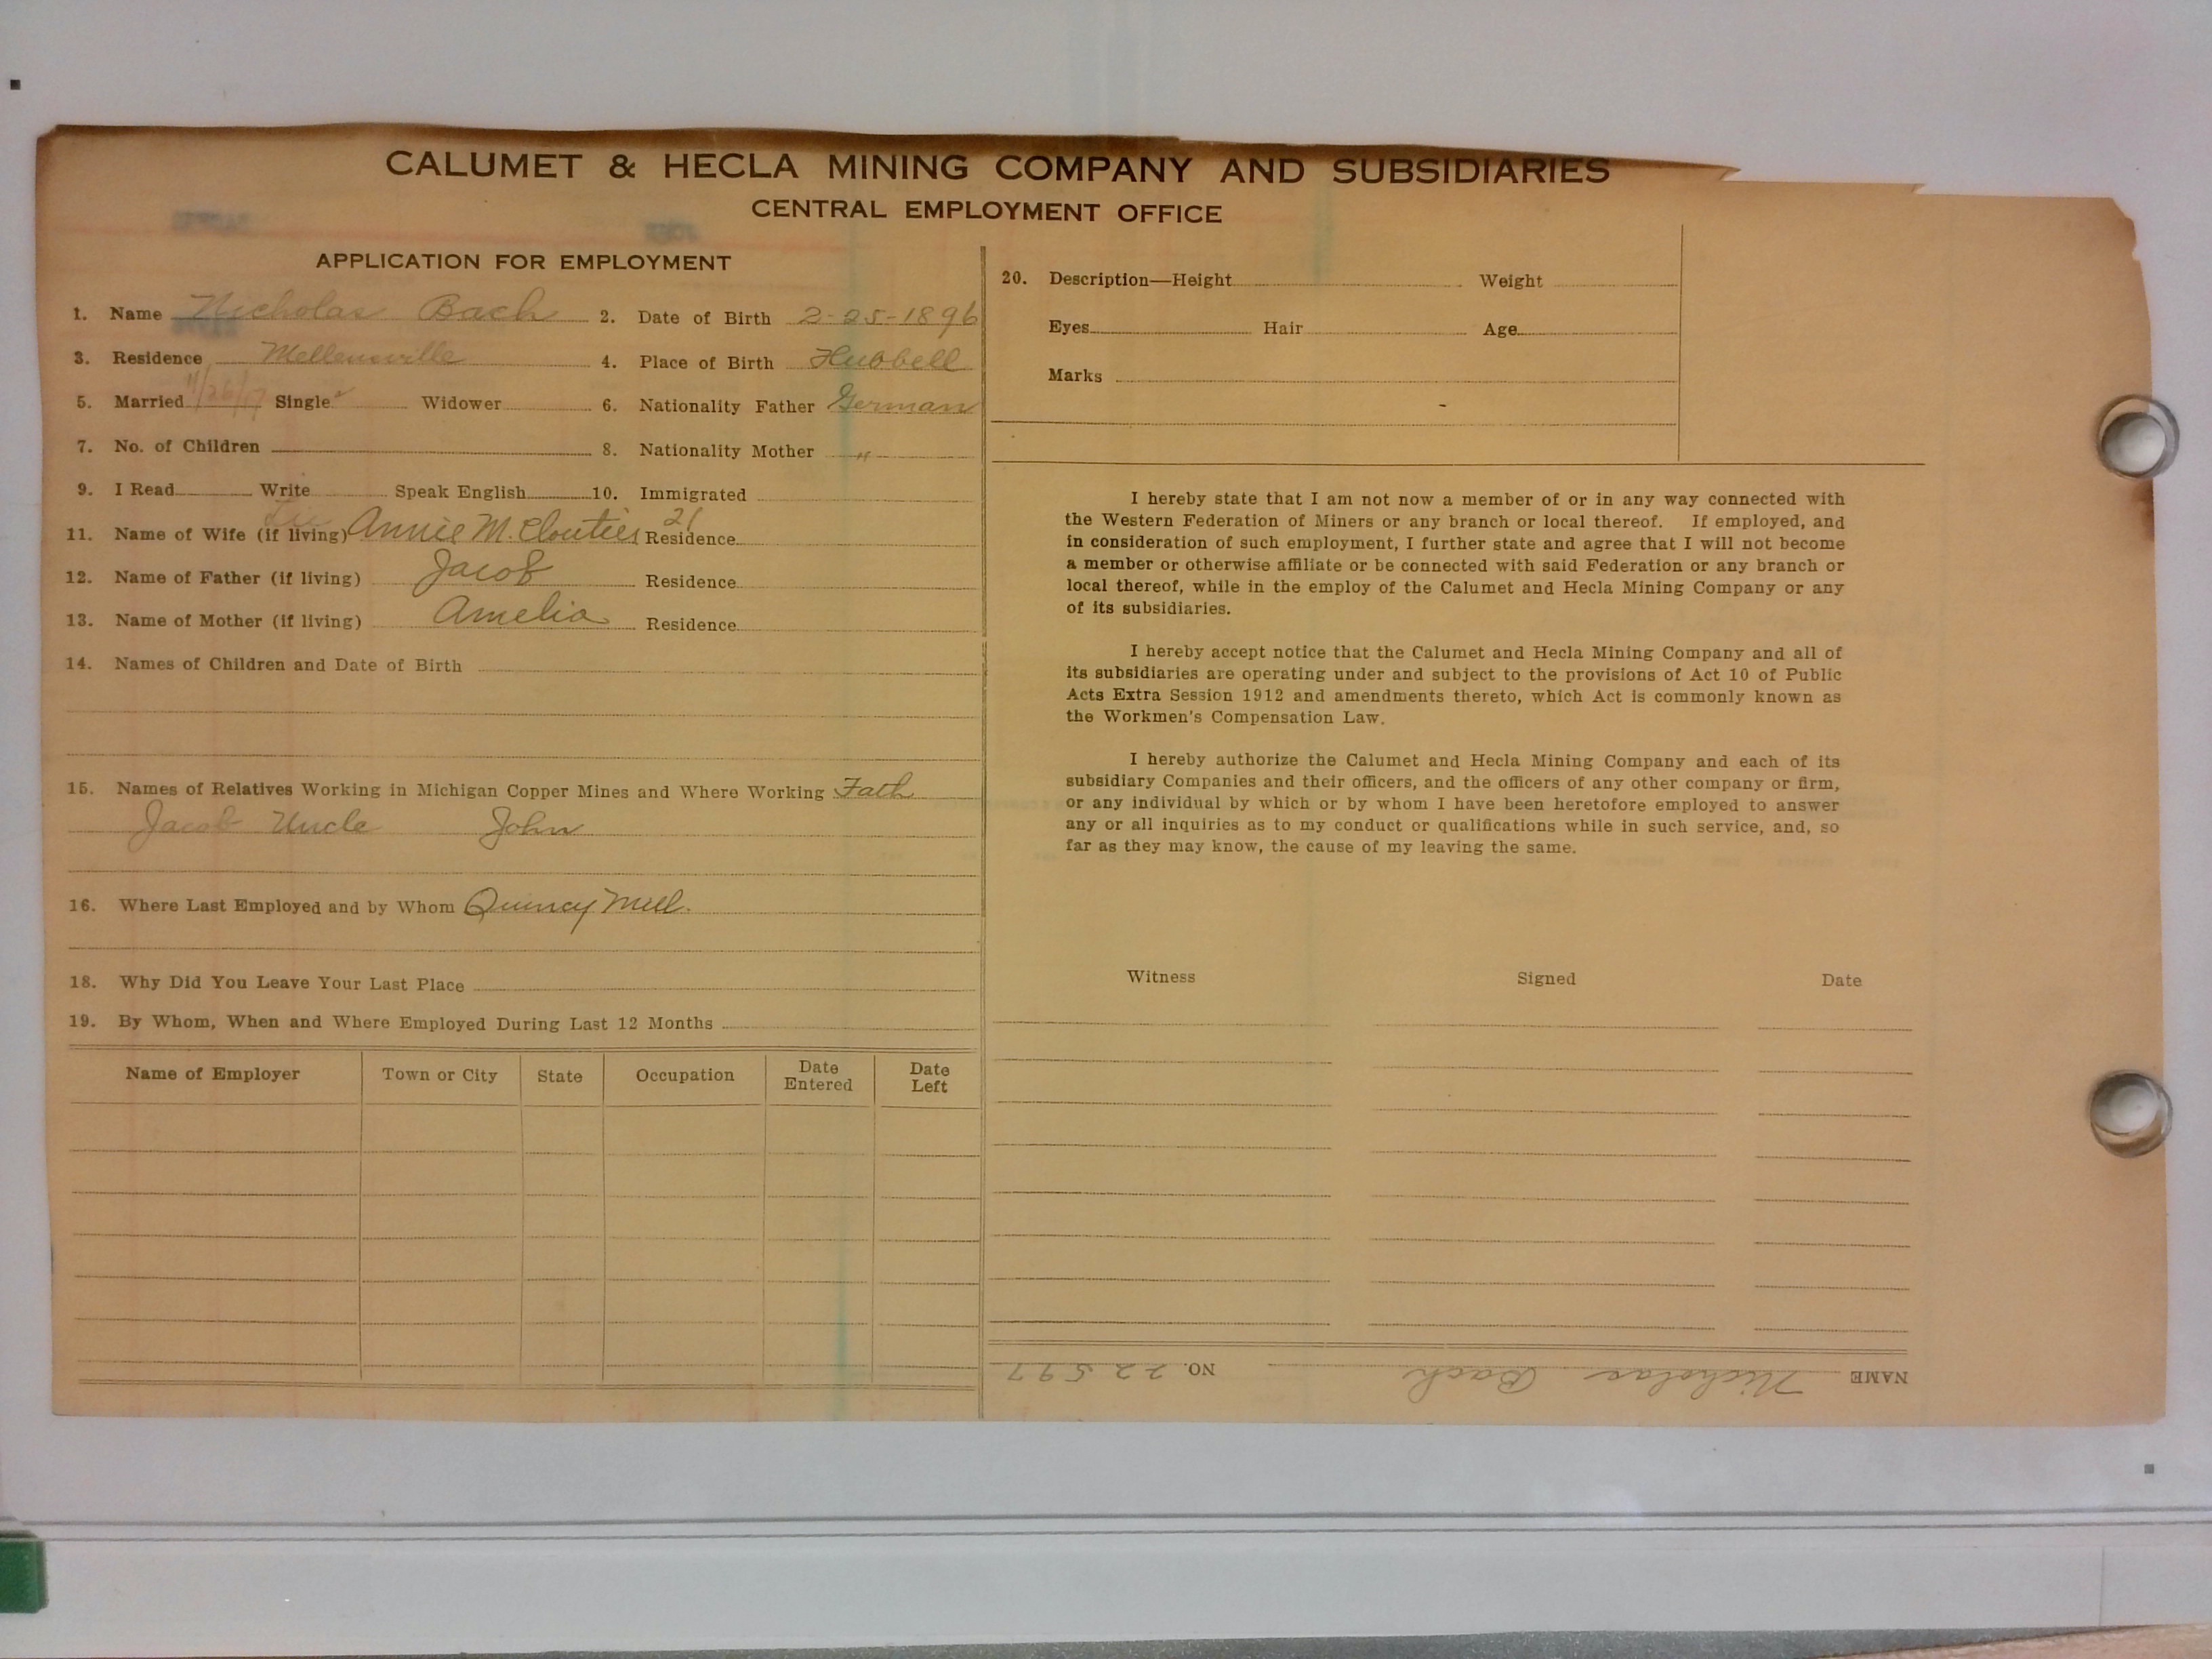 CALUMET & HECLA MINING COMPANY AND SUBSIDIARIES
CENTRAL EMPLOYMENT OFFICE
APPLICATION FOR EMPLOYMENT
1. Name Nicholas Bach 2. Date of Birth 2-25-1896
3. Residence Mellensville 4. Place of Birth Hubbell
5. Married 11/26/17 Single Widower 6. Nationality Father German
7. No. of Children 8. Nationality Mother "
9. I Read Write Speak English 10. Immigrated
21
11. Name of Wife (if living) Annie M. Cloutier Residence
12. Name of Father (if living) Jacob Residence
13. Name of Mother (if living) Amelia Residence
14. Names of Children and Date of Birth
15. Names of Relatives Working in Michigan Copper Mines and Where Working Fath
Jacob Uncle John
16. Where Last Employed and by Whom Quincy Mill.
18. Why Did You Leave Your Last Place
19. By Whom, When and Where Employed During Last 12 Months
Name of Employer Town or City State Occupation Date Entered Date Left
20. Description—Height Weight
Eyes Hair Age
Marks
I hereby state that I am not now a member of or in any way connected with
the Western Federation of Miners or any branch or local thereof. If employed, and
in consideration of such employment, I further state and agree that I will not become
a member or otherwise affiliate or be connected with said Federation or any branch or
local thereof, while in the employ of the Calumet and Hecla Mining Company or any
of its subsidiaries.
I hereby accept notice that the Calumet and Hecla Mining Company and all of
its subsidiaries are operating under and subject to the provisions of Act 10 of Public
Acts Extra Session 1912 and amendments thereto, which Act is commonly known as
the Workmen's Compensation Law.
I hereby authorize the Calumet and Hecla Mining Company and each of its
subsidiary Companies and their officers, and the officers of any other company or firm,
or any individual by which or by whom I have been heretofore employed to answer
any or all inquiries as to my conduct or qualifications while in such service, and, so
far as they may know, the cause of my leaving the same.
Witness Signed Date
NAME Nicholas Bach NO. 22597